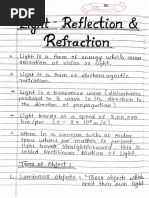 Light - Reflection &
Refraction
→ Light is a form of energy which gives
sensation of vision or sight.
→ Light is a form of electromagnetic
radiation.
→ Light is a transverse wave (disturbance
produced in a wave is ⊥ direction to
the direction of propagation)
→ Light travels at a speed of 3,00,000
km/sec
→ When in a various such as water
space where no matter is present,
Light travels Straightaway. This is called
Rectilinear Motion of Light.
Types of Object :
1. Luminous objects : Those objects which
emit their own light